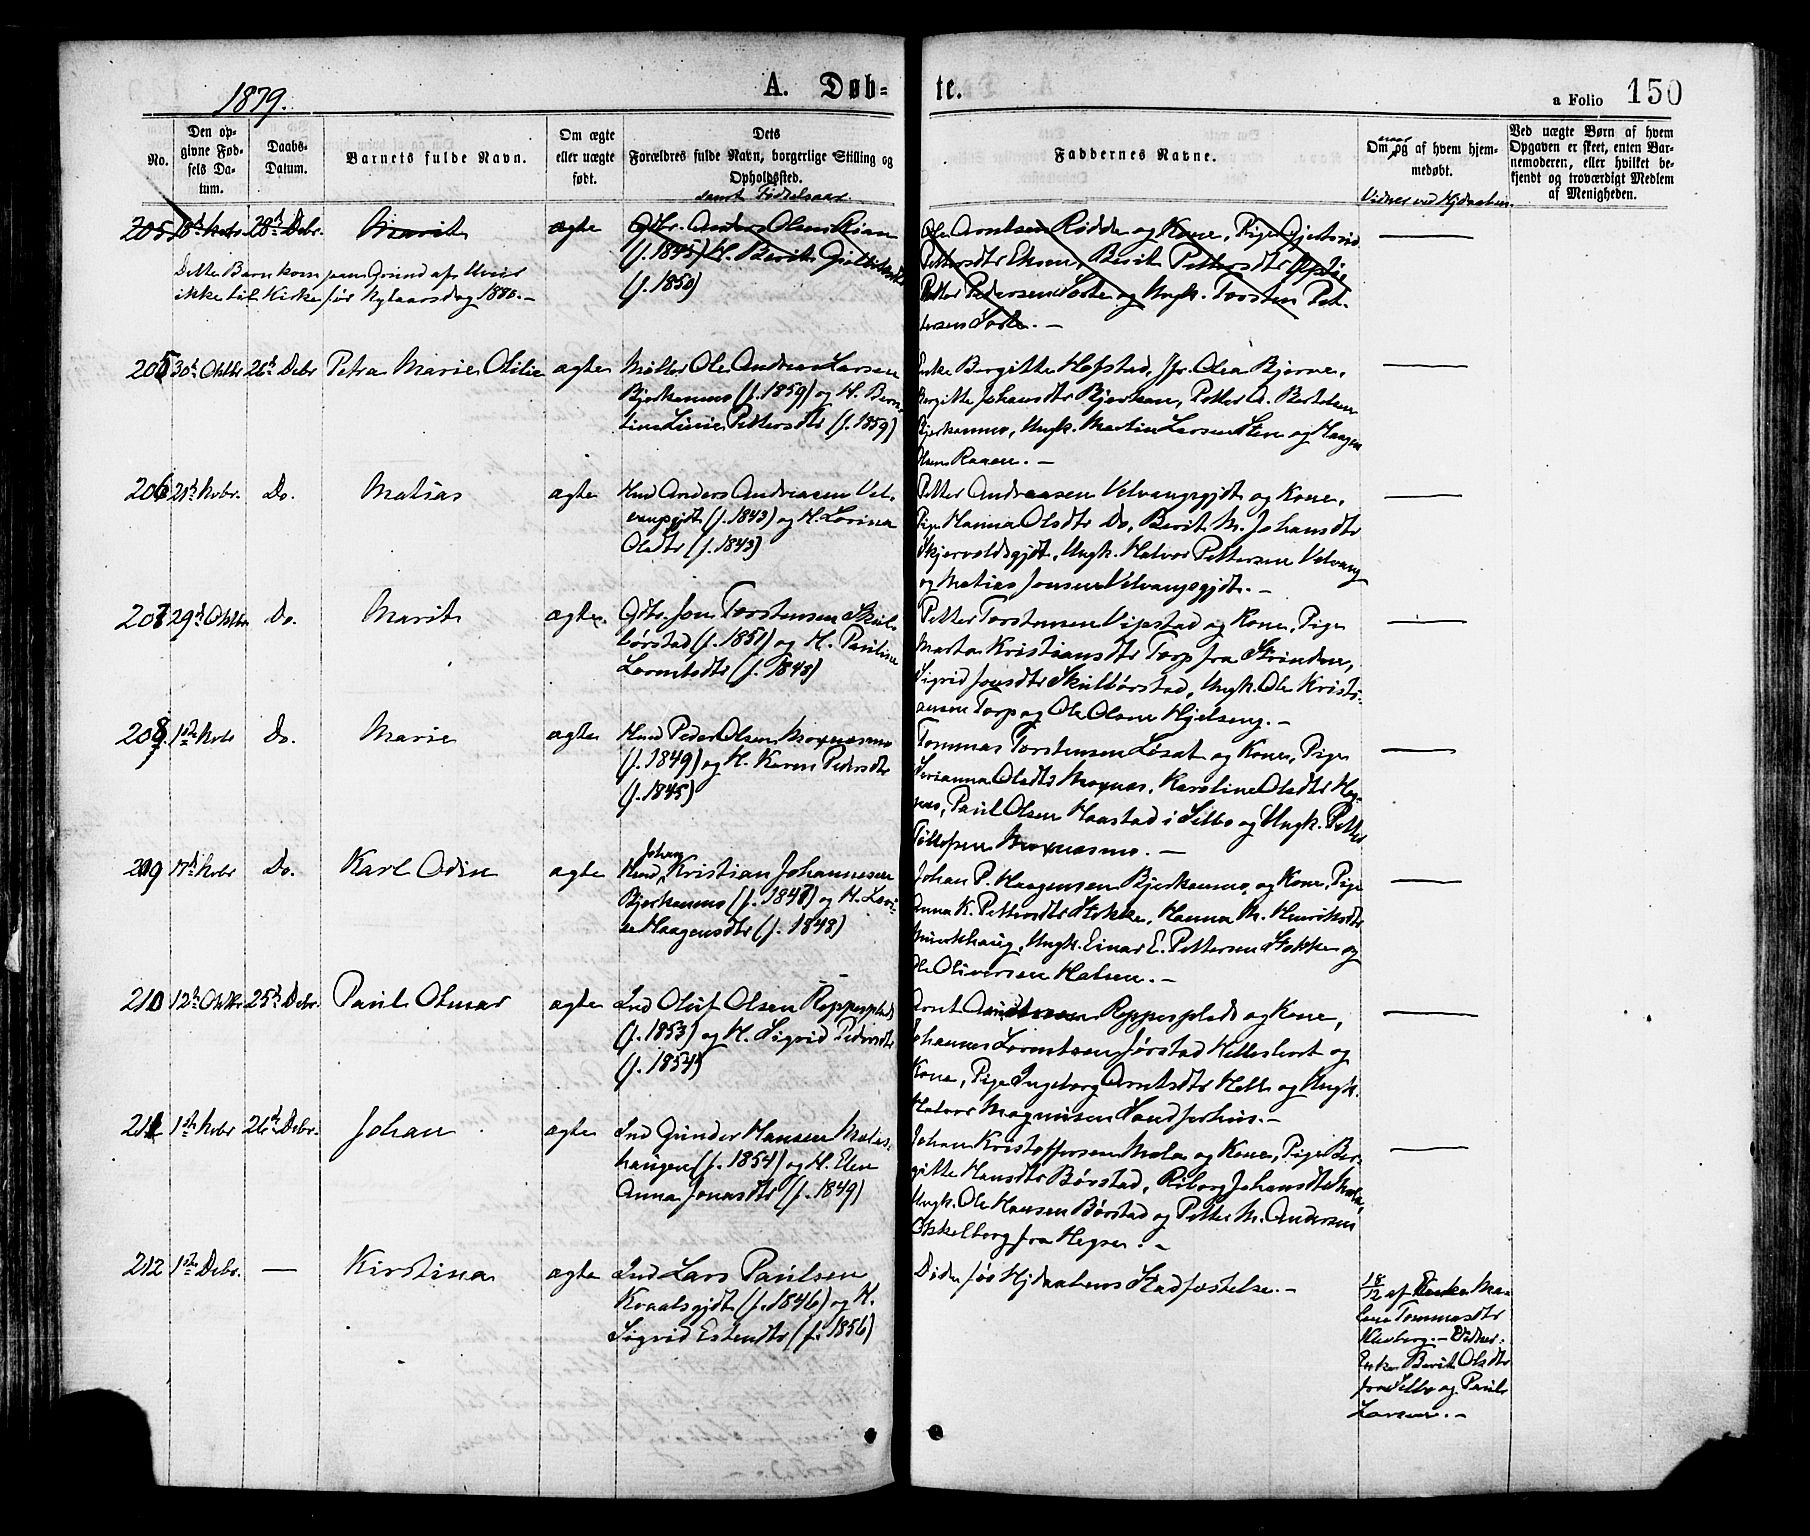 1879.
A. Døb-
te.
a Folio 150
No.
Den op-
givne Fød-
sels Da-
tum.
Daabs-
Datum.
Barnets fulde Navn.
Om ægte
eller uægte
født.
Dets
Forældres fulde Navn, borgerlige Stilling og
Opholdssted.
samt Fødselsaar
Faddernes Navne.
naar
Om og af hvem hjem-
medøbt.
Vidner ved Hjdaaben.
Ved uægte Børn af hvem
Opgaven er skeet, enten Bar-
nemoderen, eller hvilket be-
kjendt og troværdigt Medlem
af Menigheden.
205 28d Debr. Marit ægte Gbr. Anders Olsen
(f. 1845) H. Berit
(f. 1850)
Dette Barn kom paa Grund af Uveir
ikke til Kirke før Nytaarsdag 1880.-
Ole Arntsen Rødde og Kone, Pige
Pettersdtr Berit Pettersdtr
Petter Pedersen og Ungk. Torsten Pet-
tersen
205 30d Oktbr 26d Debr Petra Marie Otilie ægte Møller Ole Andreas Larsen
Bjerkanmo (f. 1859) og H. Beru-
tine Pettersdtr (f. 1859)
Enke Bergitte Hofstad, Jfr. Olea Bjerve,
Bergitte Johansdtr Bjerkan, Petter A. Bertelsen
Bjerkanmo, Ungk. Martin Larsen Sten og Haagen
Olsen Raaen. -
206 21d Nvbr. Do. Matias ægte Hmd Anders Andreasen Vel-
vangsgjdt (f. 1843) og H. Lovina
Olsdtr (f. 1843)
Petter Andreasen Velvangsgjdt og Kone,
Pige Hanna Olsdtr Do, Berit M. Johansdtr
Skjervoldsgjdt, Ungk. Halvor Pettersen Velvang
og Matias Jonsen Velvangsgjdt. -
207 29d Oktbr Do. Marit ægte. Gdbr. Jon Torstensen Skul-
børstad (f. 1851) og H. Pauline
Lorentsdtr (f. 1843)
Petter Torstensen Vigstad og Kone, Pige
Marta Kristiansdtr Torp fra Strinden,
Sigrid Jonsdtr Skulbørstad, Ungk. Ole Kristi-
ansen Torp og Ole Olsen Hjelseng. -
208 1ste Nvbr Do. Marie ægte Hmd Peder Olsen Moxnesmo
(f. 1849) og H. Karen Pedersdtr
(f. 1845)
Tommas Torstensen Løsat og Kone, Pige
Serianna Olsdtr Moxnes, Karoline Olsdtr
Paul Olsen Haastad i Selbo og Ungk. Petter
Tollefsen Moxnesmo. -
209 17d Nvbr Do. Karl Odin ægte Johan
Hmd, Kristian Johannesen
Bjerkanmo (f. 1847) og H. Lovi-
se Haagensdtr (f. 1848)
Johan P. Haagensen Bjerkanmo, og Kone, Pige
Anna K. Pettersdtr Stokke, Hanna M. Henriksdtr
Ungk. Einar E. Pettersen Stokke og
Ole Oliversen Halsen. -
210 12d Oktbr 25d Debr. Paul Otmar ægte Ind Oluf Olsen Reppesplads
(f. 1853) og H. Sigrid Pedersdtr
(f. 1854)
Arnt Reppesplads og Kone,
Johannes Lorentsen Jørstad Hellesbort og
Kone, Pige Ingeborg Arntsdtr Hell og Ungk.
Halvor Magnusen Sandferhus. -
211 1ste Nvbr 26d Debr. Johan ægte Ind Gunder Hansen Mæles-
haugen (f. 1854) og H. Elen
Anna Jonasdtr (f. 1849)
Johan Kristoffersen Mæla og Kone, Pige Ber-
gitte Hansdtr Børstad, Riborg Johansdtr Mæla,
Ungk. Ole Hansen Børstad og Petter M. Andersen
Okkelberg fra Hegre. -
212 1ste Debr. — Kirstina ægte Ind Lars Paulsen
Kvaalsgjdt (f. 1846) og H.
Sigrid Estensdtr (f. 1856)
Døde før Hjdaabens Stadfæstelse. -
18/12 af Enke Ma-
lena Tommasdtr
Kleaberg. - Vidner:
Enke Berit Olsdtr
fra Selbo og Paul
Larsen. -